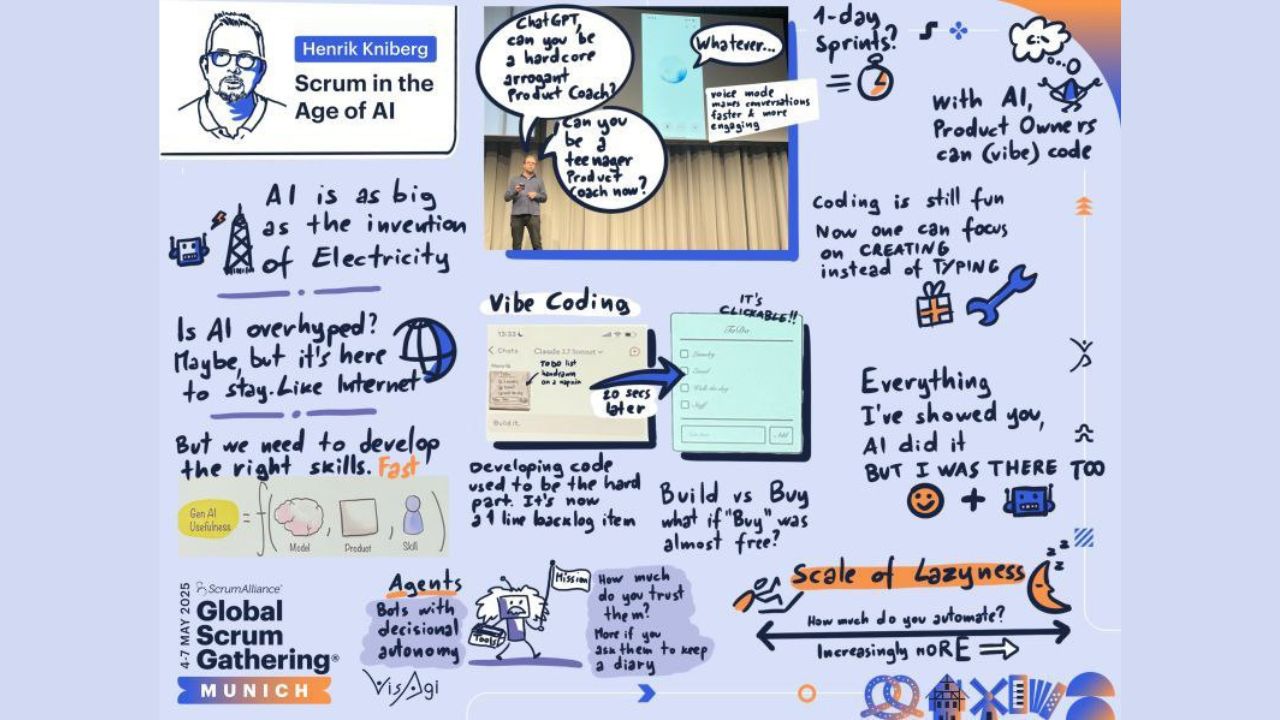 Henrik Kniberg
Scrum in the
Age of AI
AI is as big
as the invention
of Electricity
Is AI overhyped?
Maybe, but it's here
to stay. Like Internet
But we need to develop
the right skills. Fast
Gen AI
Usefulness
=
(
,
,
)
Model
Product
Skill
4-7 MAY 2025
ScrumAlliance®
Global
Scrum
Gathering®
MUNICH
ChatGPT,
can you be
a hardcore
arrogant
Product Coach?
Whatever...
voice mode
makes conversations
faster & more
engaging
Can you
be a
teenager
Product
Coach now?
Vibe Coding
13:33
Chats
Claude 3.7 Sonnet
Henrik
TODO list
handrawn
on a napkin
Build it.
20 secs
later
IT'S
CLICKABLE!!
ToDo
Laundry
Walk the dog
Add
Developing code
used to be the hard
part. It's now
a 1 line backlog item
Build vs Buy
what if "Buy" was
almost free?
Agents
Bots with
decisional
autonomy
VisAgi
Tools
Mission
How much
do you trust
them?
More if you
ask them to keep
a diary
1-day
Sprints?
With AI,
Product Owners
can (vibe) code
Coding is still fun
Now one can focus
on CREATING
instead of TYPING
Everything
I've showed you,
AI did it
BUT I WAS THERE TOO
+
Scale of Lazyness
z z z
How much do you automate?
Increasingly mORE